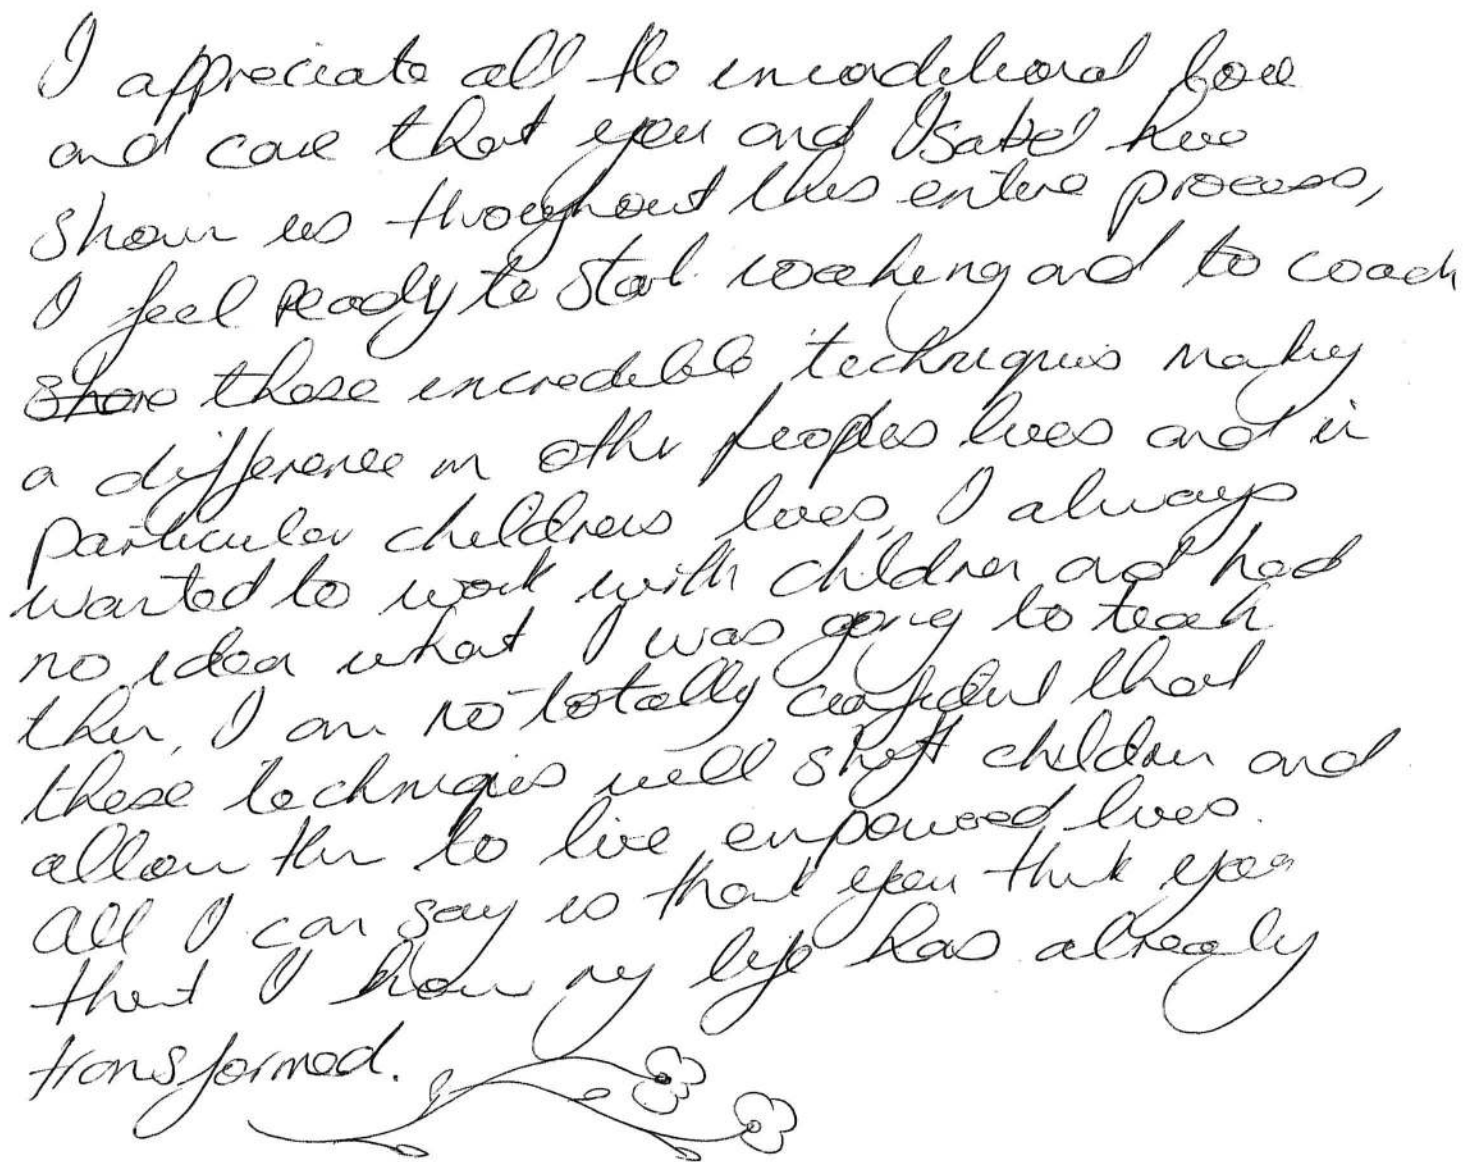 I appreciate all the uncondітional love
and care that you and Isabel have
shown us throughout this entire process,
I feel ready to start coaching and to coach
share these incredible techniques making
a difference in other peoples lives and in
particular childrens lives, I always
wanted to work with children and had
no idea what I was going to teach
them, I am no totally confident that
these techniques will shift children and
allow them to live empowered lives.
All I can say is thank you thank you
that I know my life has already
transformed.